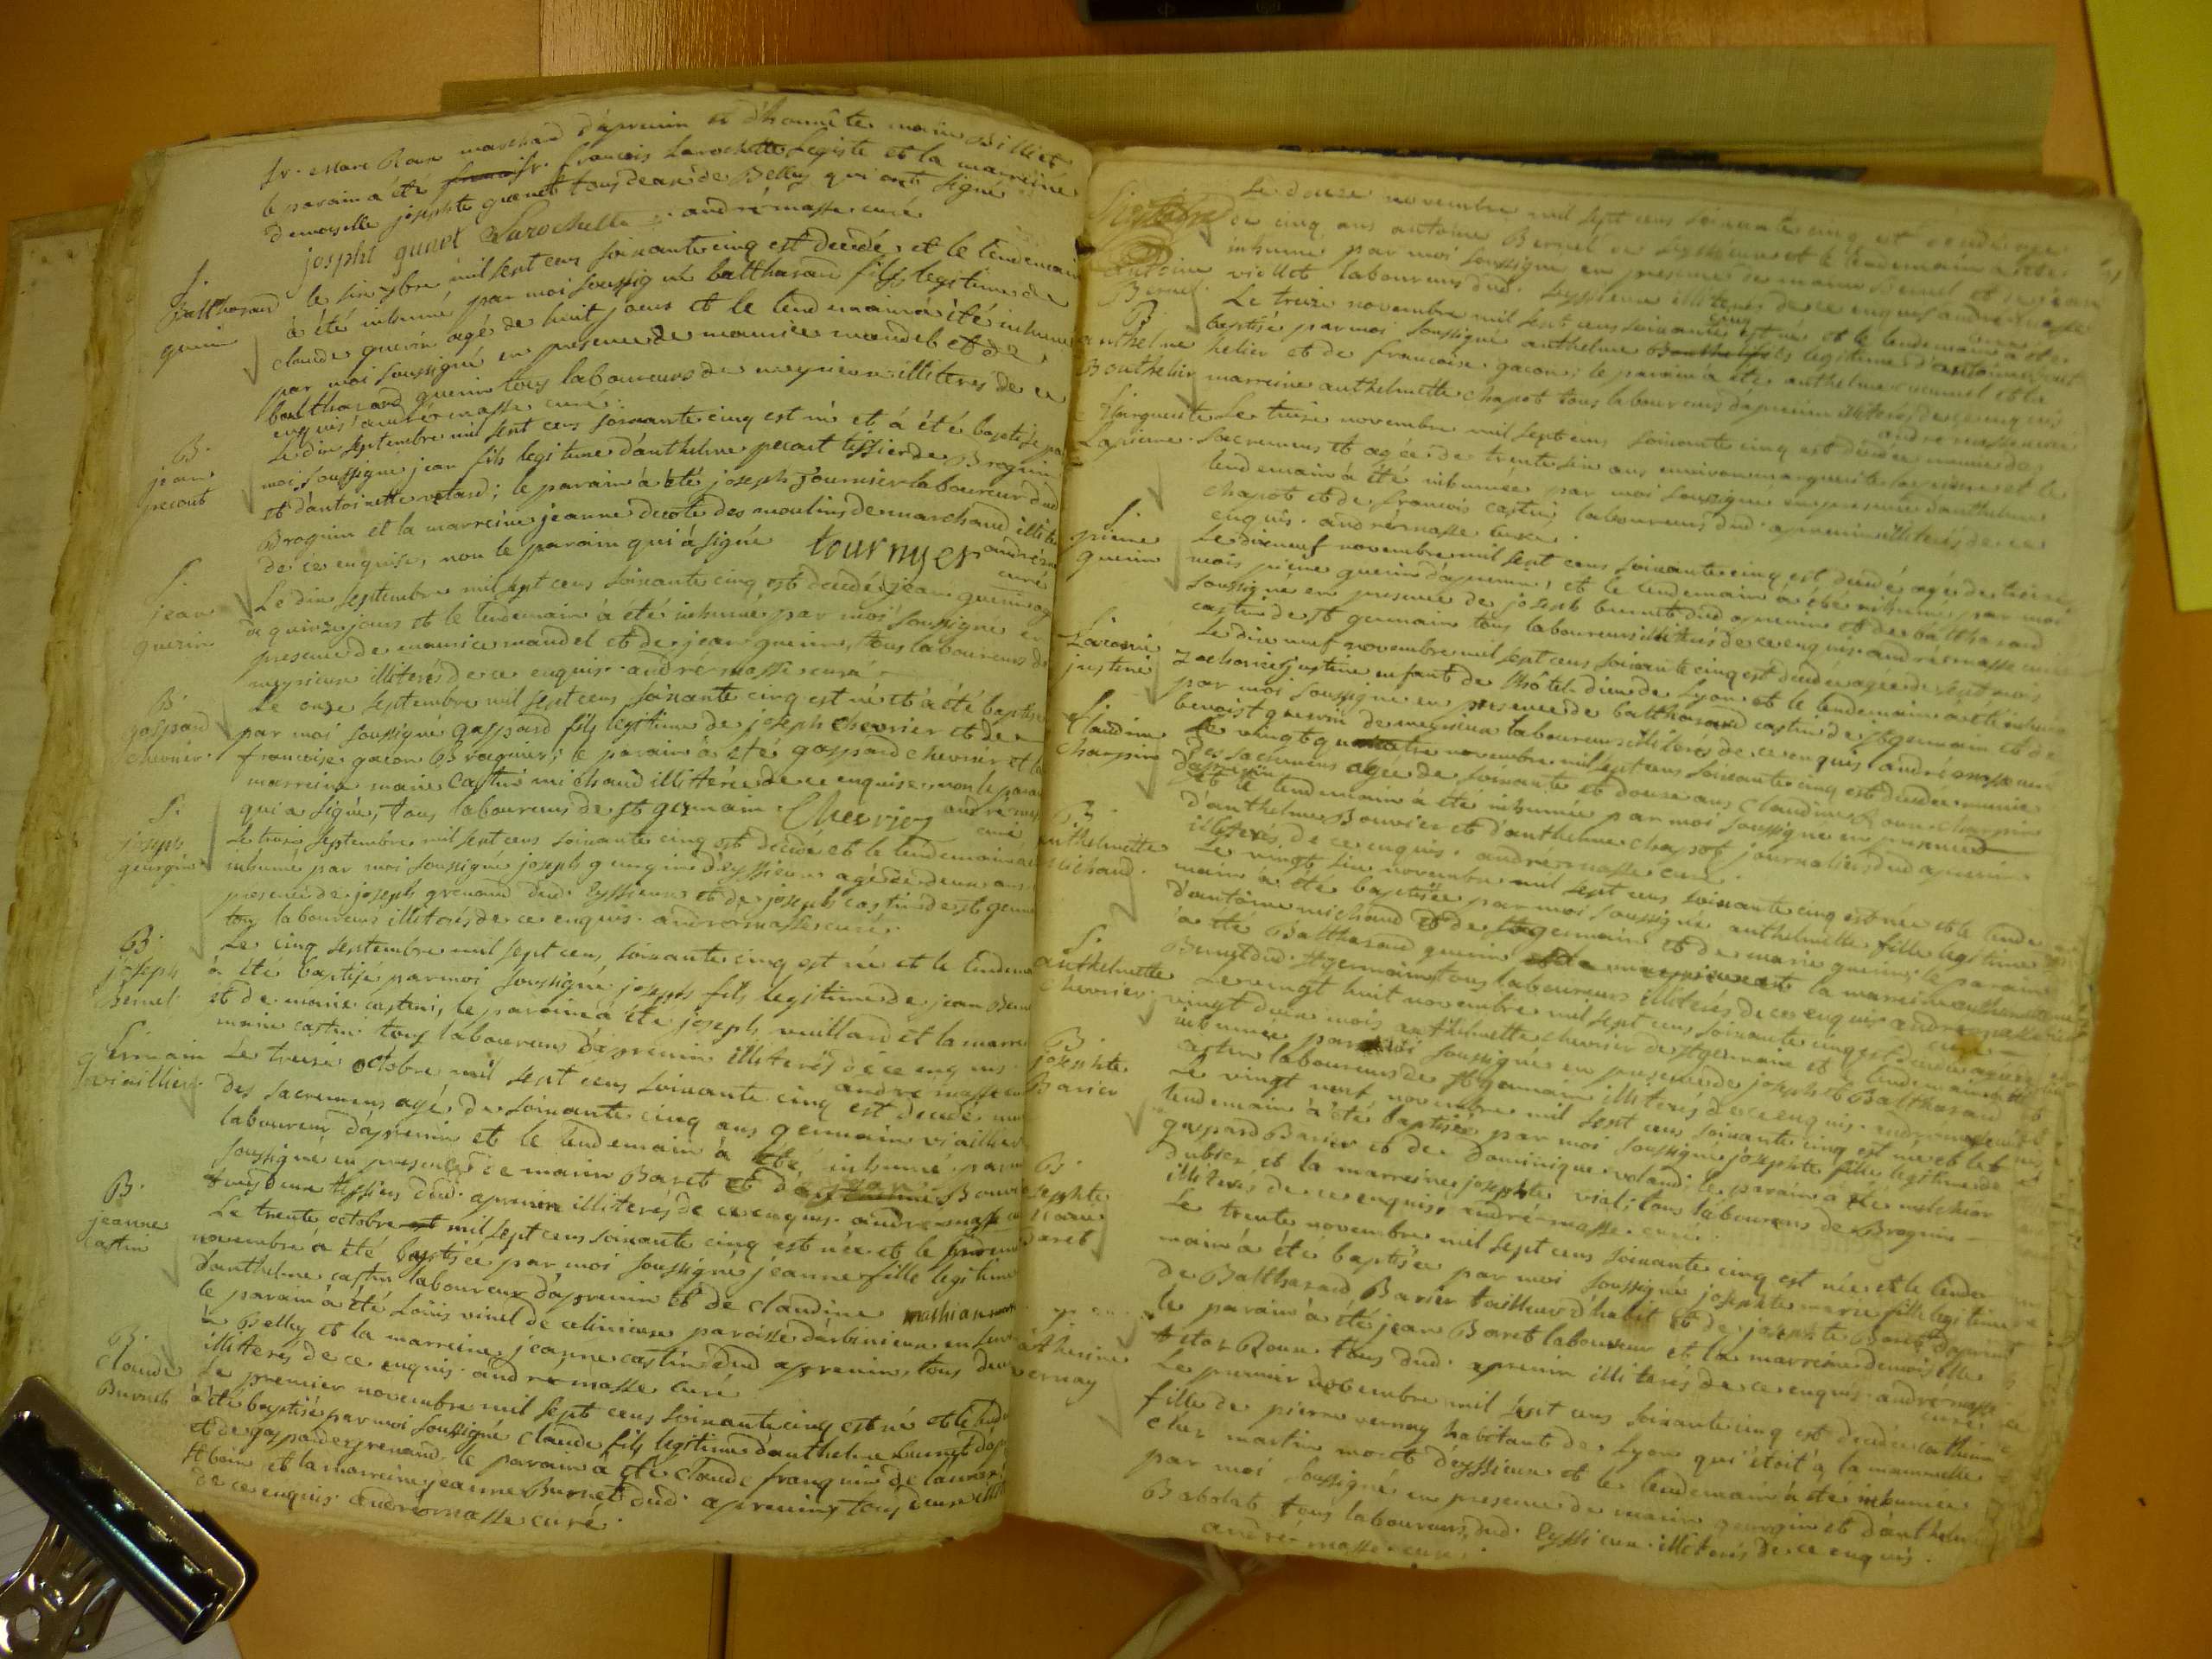 Sr. Roux marchand d'apremin et d'honnête marie Billiet
le parain a été Sr. francois Larochette Legiste et la marreine
demoiselle josephte guenet tous deux de Belley qui ont signé
josepht gunet Larochette andré masse curé
S.
Balthasard
guerin
le six 7bre mil sept cens soixante cinq est decedé, et le lendemain
à été inhumé par moi soussigné balthasard fils legitime de
claude guerin agé de huit jours et le lendemain à été inhumé
par moi soussigné en presence de maurice mandel et de
balthasard guerin tous laboureurs de meyrieux illiterés de ce
enquis. andré masse curé.
B.
jean
pecout
Le dix septembre mil sept cens soixante cinq est né et à été baptisé par
moi soussigné jean fils legitime d'anthelme pecout tissier de Brognin
et d'antoinette volland; le parain à été joseph fournier laboureur dud
Brognin et la marreine jeanne decoté des moulins de marchand illit
de ce enquise, non le parain qui à signé tournyer andré m
curé
S.
jean
guerin
Le dix septembre mil sept cens soixante cinq est decedé jean guerin agé
de quinze jours et le lendemain à été inhumé par moi soussigné en
presence de maurice mandel et de jean guerin, tous laboureurs de
meyrieux illiterés de ce enquis. andré masse curé
B
gaspard
chevrier
Le onze septembre mil sept cens soixante cinq est né et à été baptisé
par moi soussigné gaspard fils legitime de joseph chevrier et de
francoise gacon Brognier; le parain à été gaspard chevrier et la
marreine marie castin michaud illitérée de ce enquise, non le parain
qui a signé, tous laboureurs de st germain. Chevrier andré mas
curé
S.
joseph
georgin
Le trois septembre mil sept cens soixante cinq est decedé et le lendemain a
inhumé par moi soussigné joseph georgin d'eyssieux agé de deux ans
presence de joseph grenand dud. Eyssieux et de joseph castin de st germ
tous laboureurs illiterés de ce enquis. andré masse curé.
B.
joseph
Bernel
Le cinq septembre mil sept cens soixante cinq est né et le lendem
à été baptisé par moi soussigné joseph fils legitime de jean Bern
et de marie castin; le parain à été joseph vuillard et la marre
marie castin tous laboureurs d'apremin illiterés de ce enquis.
andré masse cu
germain
viallier
Le treize octobre mil sept cens soixante cinq est decedé mu
des sacremens agé de soixante cinq ans germain viallier
laboureur d'apremin et le lendemain à été inhumé par m
soussigné en presence de marin Baret et de jean Bouvi
tous deux tissiers dud. apremin illiterés de ce enquis. andré masse cu
B.
jeanne
castin
Le trente octobre mil sept cens soixante cinq est née et le premi
novembre à été baptisée par moi soussigné jeanne fille legitime
d'anthelme castin laboureur d'apremin et de claudine
le parain à été Louis vinel de paroisse d'arbinieux en
à Belley et la marreine jeanne castin dud apremin, tous deux
illiterés de ce enquis. andré masse curé
B.
claude
Burnet
Le premier novembre mil sept cens soixante cinq est né et le lend
à été baptisé par moi soussigné claude fils legitime d'anthelme Burnet d'ap
et de gasparde grenand. le parain à été claude franquin de
et la marreine jeanne Burnet dud. apremin, tous deux illit
de ce enquis. andré masse curé.
Antoine
Bernel
Le douze novembre mil sept cens soixante cinq est decedé agé
de cinq ans antoine Bernel de Eyssieux et le lendemain à été
inhumé par moi soussigné en presence de marin Bernel et de jean
viollet laboureurs dud. Eyssieux illiterés de ce enquis andré masse
B.
anthelme
Bonthelier
Le treize novembre mil sept cens soixante cinq est né et le lendemain à été
baptisé par moi soussigné anthelme fils legitime d'antoine bont
helier et de francoise gacon; le parain à été anthelme et la
marreine anthelmette chapot tous laboureurs d'apremin illiterés de ce enquis
andré masse curé
S.
Marguerite
Lapierre
Le treize novembre mil sept cens soixante cinq est decedée munie des
sacremens et agée de trente six ans environ marguerite lapierre et le
lendemain à été inhumée par moi soussigné en presence d'anthelme
chapot et de francois castin laboureurs dud. apremin illiterés de ce
enquis. andré masse curé.
S.
pierre
guerin
Le dixneuf novembre mil sept cens soixante cinq est decedé agé de treize
mois pierre guerin d'apremin, et le lendemain à été inhumé par moi
soussigné en presence de joseph burnet dud apremin et de balthasard
castin de st germain tous laboureurs illiterés de ce enquis andré masse curé
Zacarie
justine
Le dix neuf novembre mil sept cens soixante cinq est decedée agée de sept mois
zacharie justine enfant de l'hôtel-dieu de Lyon et le lendemain à été inhumée
par moi soussigné en presence de balthasard castin de st germain et de
benoist guerin de meyrieux laboureurs illiterés de ce enquis. andré masse curé
Claudine
charpin
Le vingt quatre novembre mil sept cens soixante cinq est decedée munie
des sacremens agée de soixante et douze ans claudine charpin
d'apremin
et le lendemain à été inhumée par moi soussigné en presence
d'anthelme Bouvier et d'anthelme chapot journaliers dud apremin
illiterés de ce enquis. andré masse curé.
B.
anthelmette
Michaud.
Le vingt six novembre mil sept cens soixante cinq est née et le lende
main à été baptisée par moi soussigné anthelmette fille legitime
d'antoine michaud de st germain et de marie guerin; le parain
à été Balthasard guerin et la marreine anthelmette
Benet dud. st germain tous laboureurs illiterés de ce enquis andré masse
curé
S.
anthelmette
Chevrier.
Le vingt huit novembre mil sept cens soixante cinq est decedée agée de
vingt deux mois anthelmette chevrier de st germain et le lendemain à été
inhumée par moi soussigné en presence de joseph et Balthasard
castin laboureurs de st germain illiterés de ce enquis. andré masse curé
B.
josephte
Barier
Le vingt neuf novembre mil sept cens soixante cinq est née et le
lendemain à été baptisée par moi soussigné josephte fille legitime de
gaspard Barier et de dominique voland; le parain à été melchior
dubier et la marreine josephte vial; tous laboureurs de Brognin
illiterés de ce enquis, andré masse. curé.
B.
josephte
marie
Baret
Le trente novembre mil sept cens soixante cinq est née et le lende
main à été baptisée par moi soussigné josephte marie fille legitime
de Balthasard Barier tailleur d'habit et de josephte Baret d'apremin
le parain à été jean Baret laboureur et la marreine demoiselle
Roux tous dud. apremin illiterés de ce enquis. andré masse
curé
catherine
vernay
Le premier decembre mil sept cens soixante cinq est decedée catherine
fille de pierre vernay habitant de Lyon qui étoit à la mammelle
chez martin moret d'eyssieux et le lendemain à été inhumée
par moi soussigné en presence de marin georgin et d'anthelme
Babolat tous laboureurs dud. Eyssieux. illiterés de ce enquis.
andré masse curé.